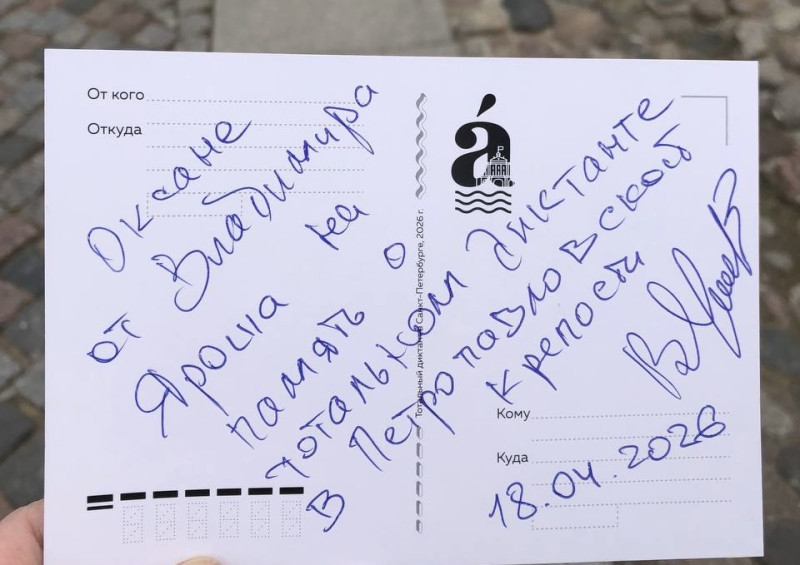 От кого
Откуда
Оксане
от Владимира
Яроша на
память о
тотальном диктанте
в Петропавловской
крепости
á
Тотальный диктант, Санкт-Петербург, 2026 г.
Кому
Куда
18.04.2026